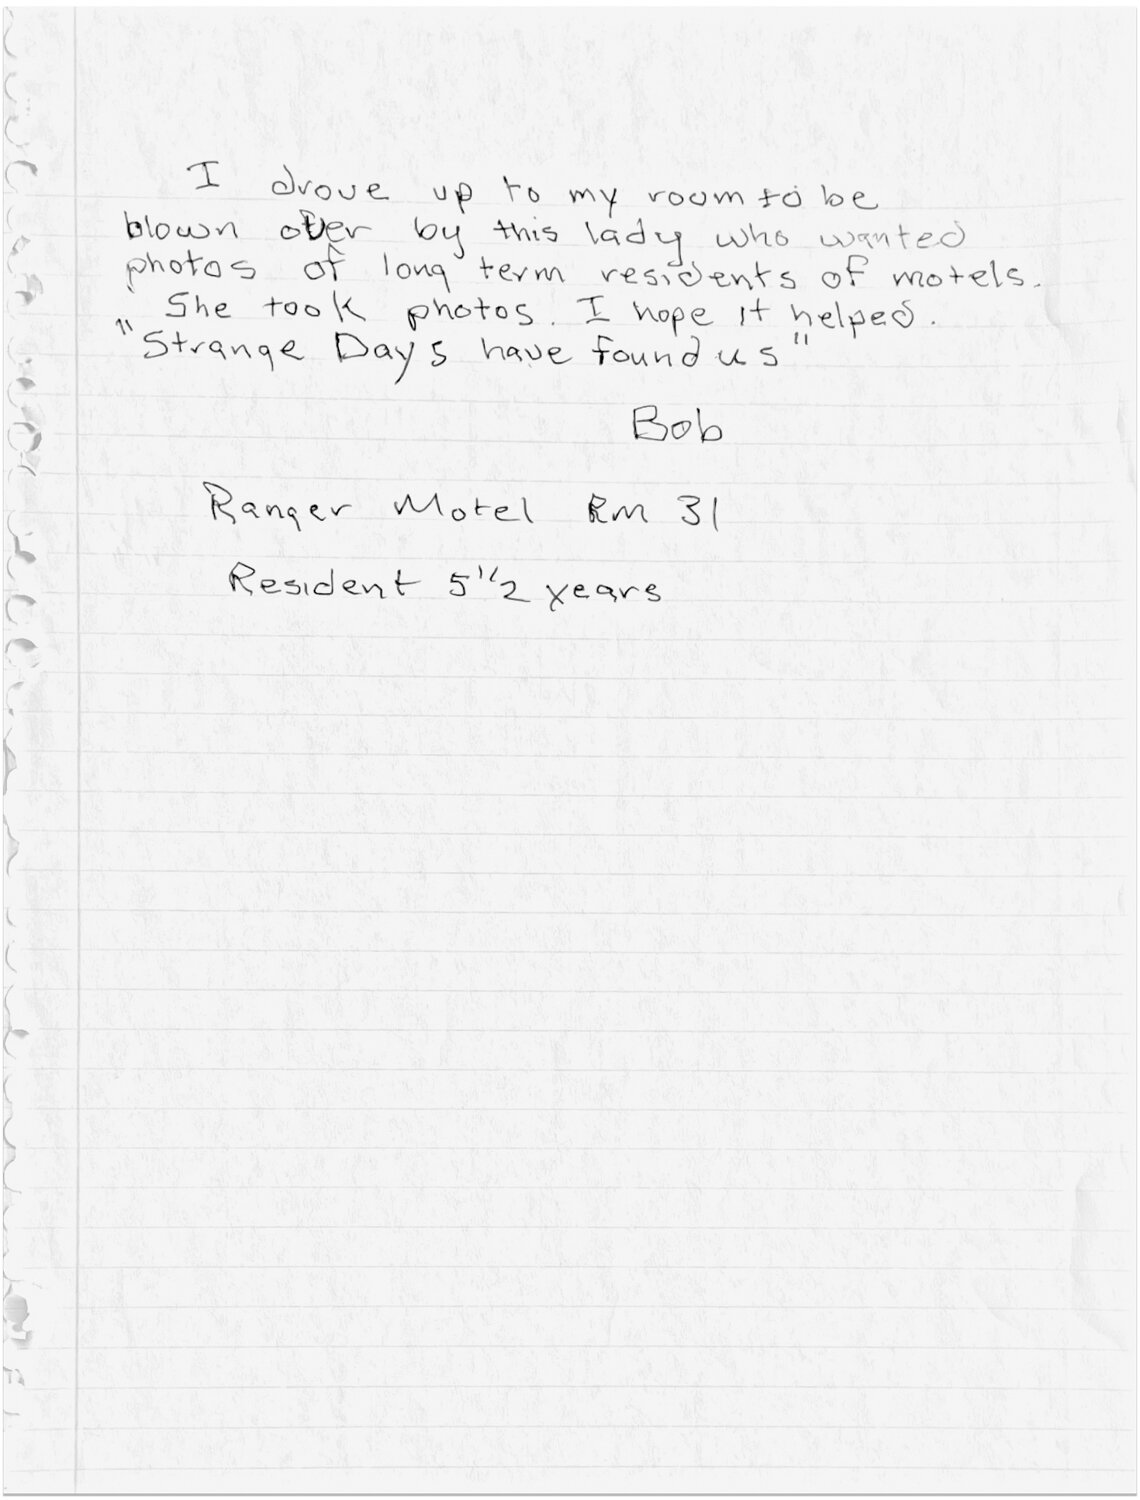 I drove up to my room to be
blown over by this lady who wanted
photos of long term residents of motels.
She took photos. I hope it helped.
"Strange Days have found us"
Bob
Ranger Motel Rm 31
Resident 5 1/2 years